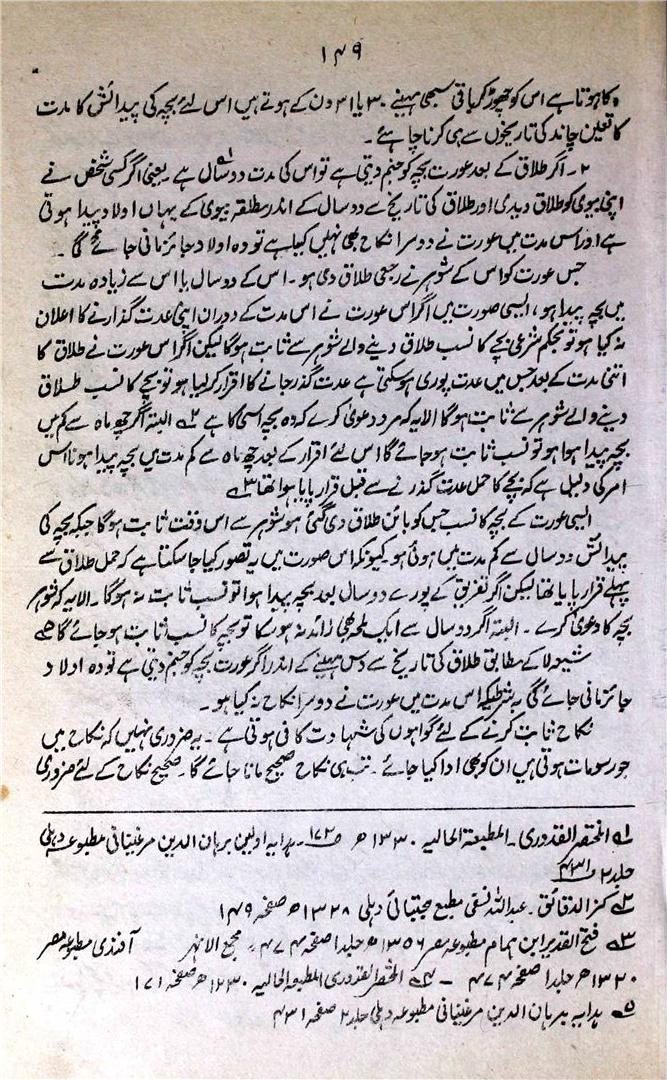 ۱۴۹
کا ہوتا ہے اس کو چھوڑ کر باقی سبھی مہینے ۳۰ یا ۳۱ دن کے ہوتے ہیں اس لئے بچہ کی پیدائش کا مدت
کا تعین چاند کی تاریخوں سے ہی کرنا چاہئے ۔
۲ ۔ اگر طلاق کے بعد عورت بچہ کو جنم دیتی ہے تو اس کی مدت دو سال ہے یعنی اگر کسی شخص نے
اپنی بیوی کو طلاق دیدی اور طلاق کی تاریخ سے دو سال کے اندر مطلقہ بیوی کے یہاں اولاد پیدا ہوتی
ہے اور اس مدت میں عورت نے دوسرا نکاح بھی نہیں کیا ہے تو وہ اولاد جائز مانی جائے گی ۔
جس عورت کو اس کے شوہر نے رجعی طلاق دی ہو ۔ اس کے دو سال یا اس سے زیادہ مدت
میں بچہ پیدا ہو ، ایسی صورت میں اگر اس عورت نے اس مدت کے دوران اپنی عدت گذارنے کا اعلان
نہ کیا ہو تو بحکم شرعی بچے کا نسب طلاق دینے والے شوہر سے ثابت ہوگا لیکن اگر اس عورت نے طلاق کا
اتنی مدت کے بعد جس میں عدت پوری ہو سکتی ہے عدت گذر جانے کا اقرار کر لیا ہو تو بچے کا نسب طلاق
دینے والے شوہر سے ثابت ہوگا الا یہ کہ مرد دعویٰ کرے کہ وہ بچہ اسی کا ہے ۲؎ البتہ اگر چھ ماہ سے کم میں
بچہ پیدا ہوا ہو تو نسب ثابت ہو جائے گا اس لئے اقرار کے بعد چھ ماہ سے کم مدت میں بچہ پیدا ہونا اس
امر کی دلیل ہے کہ بچے کا حمل عدت گذرنے سے قبل قرار پایا ہوا تھا ۳؎
ایسی عورت کے بچہ کا نسب جس کو بائن طلاق دی گئی ہو شوہر سے اس وقت ثابت ہوگا جبکہ بچہ کی
پیدائش دو سال سے کم مدت میں ہوئی ہو کیونکہ اس صورت میں یہ تصور کیا جا سکتا ہے کہ حمل طلاق سے
پہلے قرار پایا تھا لیکن اگر تفریق کے پورے دو سال بعد بچہ پیدا ہوا تو نسب ثابت نہ ہوگا ۔ الا یہ کہ شوہر
بچہ کا دعویٰ کرے ۔ البتہ اگر دو سال سے ایک لمحہ بھی زائد نہ ہو سکا تو بچہ کا نسب ثابت ہو جائے گا ۵؎
شیعہ لا کے مطابق طلاق کی تاریخ سے دس مہینے کے اندر اگر عورت بچہ کو جنم دیتی ہے تو وہ اولاد
جائز مانی جائے گی بشرطیکہ اس مدت میں عورت نے دوسرا نکاح نہ کیا ہو ۔
نکاح ثابت کرنے کے لئے گواہوں کی شہادت کافی ہوتی ہے ۔ یہ ضروری نہیں کہ نکاح میں
جو رسومات ہوتی ہیں ان کو بھی ادا کیا جائے ۔ تب ہی نکاح صحیح مانا جائے گا ۔ صحیح نکاح کے لئے ضروری
۱؎ المختصر القدوری ۔ المطبعۃ الحالیہ ۱۳۳۰ھ ص۱۷۲ ۔ ہدایہ اولین برہان الدین مرغینانی مطبوعہ دہلی
جلد ۲ ص۴۳۱
۲؎ کنز الدقائق ۔ عبداللہ نسفی مطبع مجتبائی دہلی ۱۳۲۸ھ صفحہ ۱۴۹
۳؎ فتح القدیر ابن ہمام مطبوعہ مصر ۱۳۵۶ھ جلد ۱ صفحہ ۴۷۴ ۔ مجمع الانہر آفندی مطبوعہ مصر
۱۳۲۰ھ جلد ۱ صفحہ ۴۷۴ ۔ ۴؎ المختصر القدوری المطبوعہ الحالیہ ۱۲۳۰ھ صفحہ ۱۷۱
۵؎ ہدایہ برہان الدین مرغینانی مطبوعہ دہلی جلد ۲ صفحہ ۴۳۱